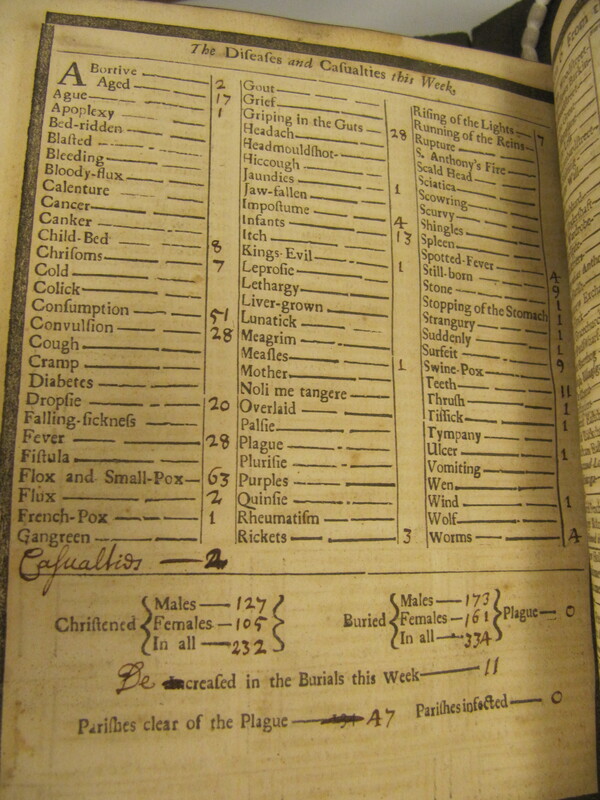 The Diſeaſes and Caſualties this Week,
Abortive 2
Aged 17
Ague 1
Apoplexy
Bed-ridden
Blaſted
Bleeding
Bloody-flux
Calenture
Cancer
Canker
Child-Bed 8
Chriſoms 7
Cold
Colick
Conſumption 51
Convulſion 28
Cough
Cramp
Diabetes
Dropſie 20
Falling-ſickneſs
Fever 28
Fiſtula
Flox and Small-Pox 63
Flux 2
French-Pox 1
Gangreen
Gout
Grief
Griping in the Guts 28
Headach
Headmouldſhot
Hiccough
Jaundies 1
Jaw-fallen
Impoſtume 4
Infants 13
Itch
Kings-Evil 1
Leproſie
Lethargy
Liver-grown
Lunatick
Meagrim
Meaſles 1
Mother
Noli me tangere
Overlaid
Palſie
Plague
Pluriſie
Purples
Quinſie
Rheumatiſm
Rickets 3
Riſing of the Lights 7
Running of the Reins
Rupture
S. Anthony's Fire
Scald Head
Sciatica
Scowring
Scurvy
Shingles
Spleen
Spotted-Fever 4
Still-born 9
Stone 1
Stopping of the Stomach 1
Strangury 1
Suddenly 1
Surfeit 9
Swine-Pox
Teeth 11
Thruſh 1
Tiſſick 1
Tympany
Ulcer 1
Vomiting
Wen
Wind 1
Wolf
Worms 4
Caſualtids — 2
Chriſtened
Males — 127
Females — 105
In all — 232
Buried
Males — 173
Females — 161
In all — 334
Plague — 0
De creaſed in the Burials this Week — 11
Pariſhes clear of the Plague — 47
Pariſhes infected — 0